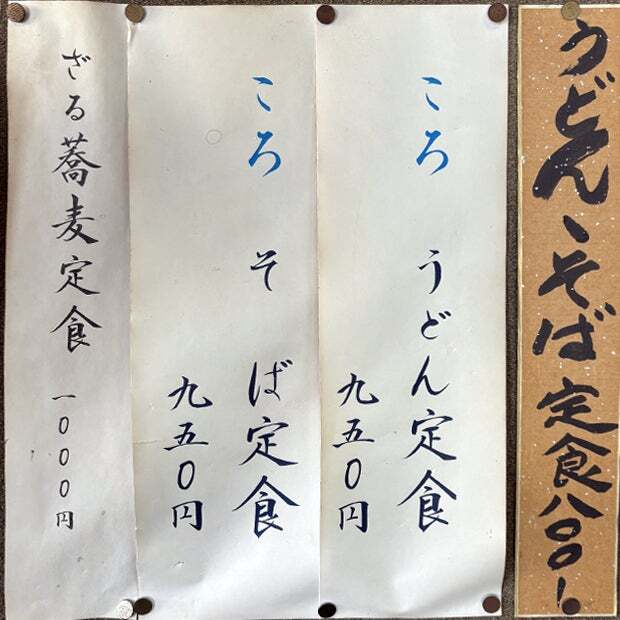 うどん、そば定食八〇〇、
ころ うどん定食
九五〇円
ころ そば定食
九五〇円
ざる蕎麦定食 一〇〇〇円